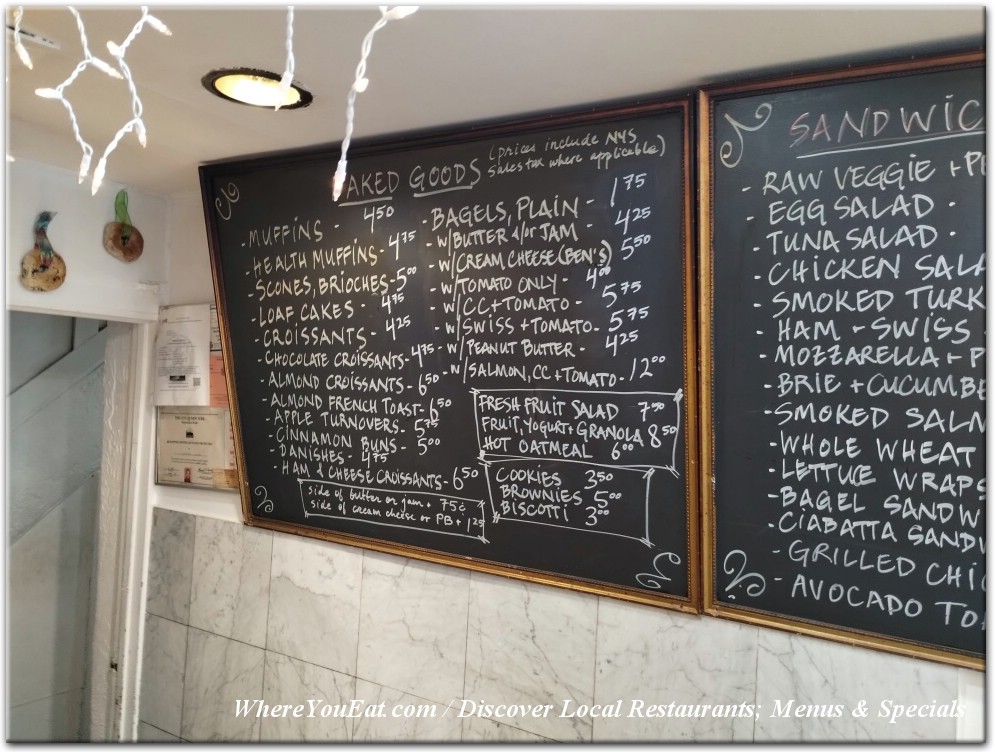 BAKED GOODS (prices include NYS
sales tax where applicable)
- MUFFINS - 4 50
- HEALTH MUFFINS - 4 75
- SCONES, BRIOCHES - 5 00
- LOAF CAKES - 4 75
- CROISSANTS - 4 25
- CHOCOLATE CROISSANTS - 4 75
- ALMOND CROISSANTS - 6 50
- ALMOND FRENCH TOAST - 6 50
- APPLE TURNOVERS - 5 75
- CINNAMON BUNS - 5 00
- DANISHES - 4 75
- HAM & CHEESE CROISSANTS - 6 50
side of butter or jam + 75¢
side of cream cheese or PB + 1 25
- BAGELS, PLAIN - 1 75
- W/BUTTER &/or JAM - 4 25
- W/CREAM CHEESE (BEN'S) 5 50
- W/TOMATO ONLY - 4 00
- W/CC + TOMATO - 5 75
- W/SWISS + TOMATO - 5 75
- W/PEANUT BUTTER - 4 25
- W/SALMON, CC + TOMATO - 12 00
FRESH FRUIT SALAD 7 50
FRUIT, YOGURT + GRANOLA 8 50
HOT OATMEAL 6 00
COOKIES 2 50
BROWNIES 5 00
BISCOTTI 3 00
SANDWIC
- RAW VEGGIE + PE
- EGG SALAD -
- TUNA SALAD -
- CHICKEN SALA
- SMOKED TURK
- HAM + SWISS
- MOZZARELLA + P
- BRIE + CUCUMBE
- SMOKED SALM
- WHOLE WHEAT
- LETTUCE WRAPS
- BAGEL SANDW
- CIABATTA SANDW
- GRILLED CHIC
- AVOCADO TO
WhereYouEat.com / Discover Local Restaurants; Menus & Specials